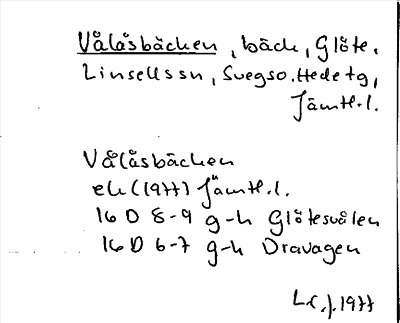 Vålåsbäcken, bäck, Glöte,
Linsellssn, Svegso. Hede tg,
Jämtl. l.
Vålåsbäcken
ek (1977) Jämtl. l.
16 D 8-9 g-h Glötesvålen
16 D 6-7 g-h Dravagen
1977